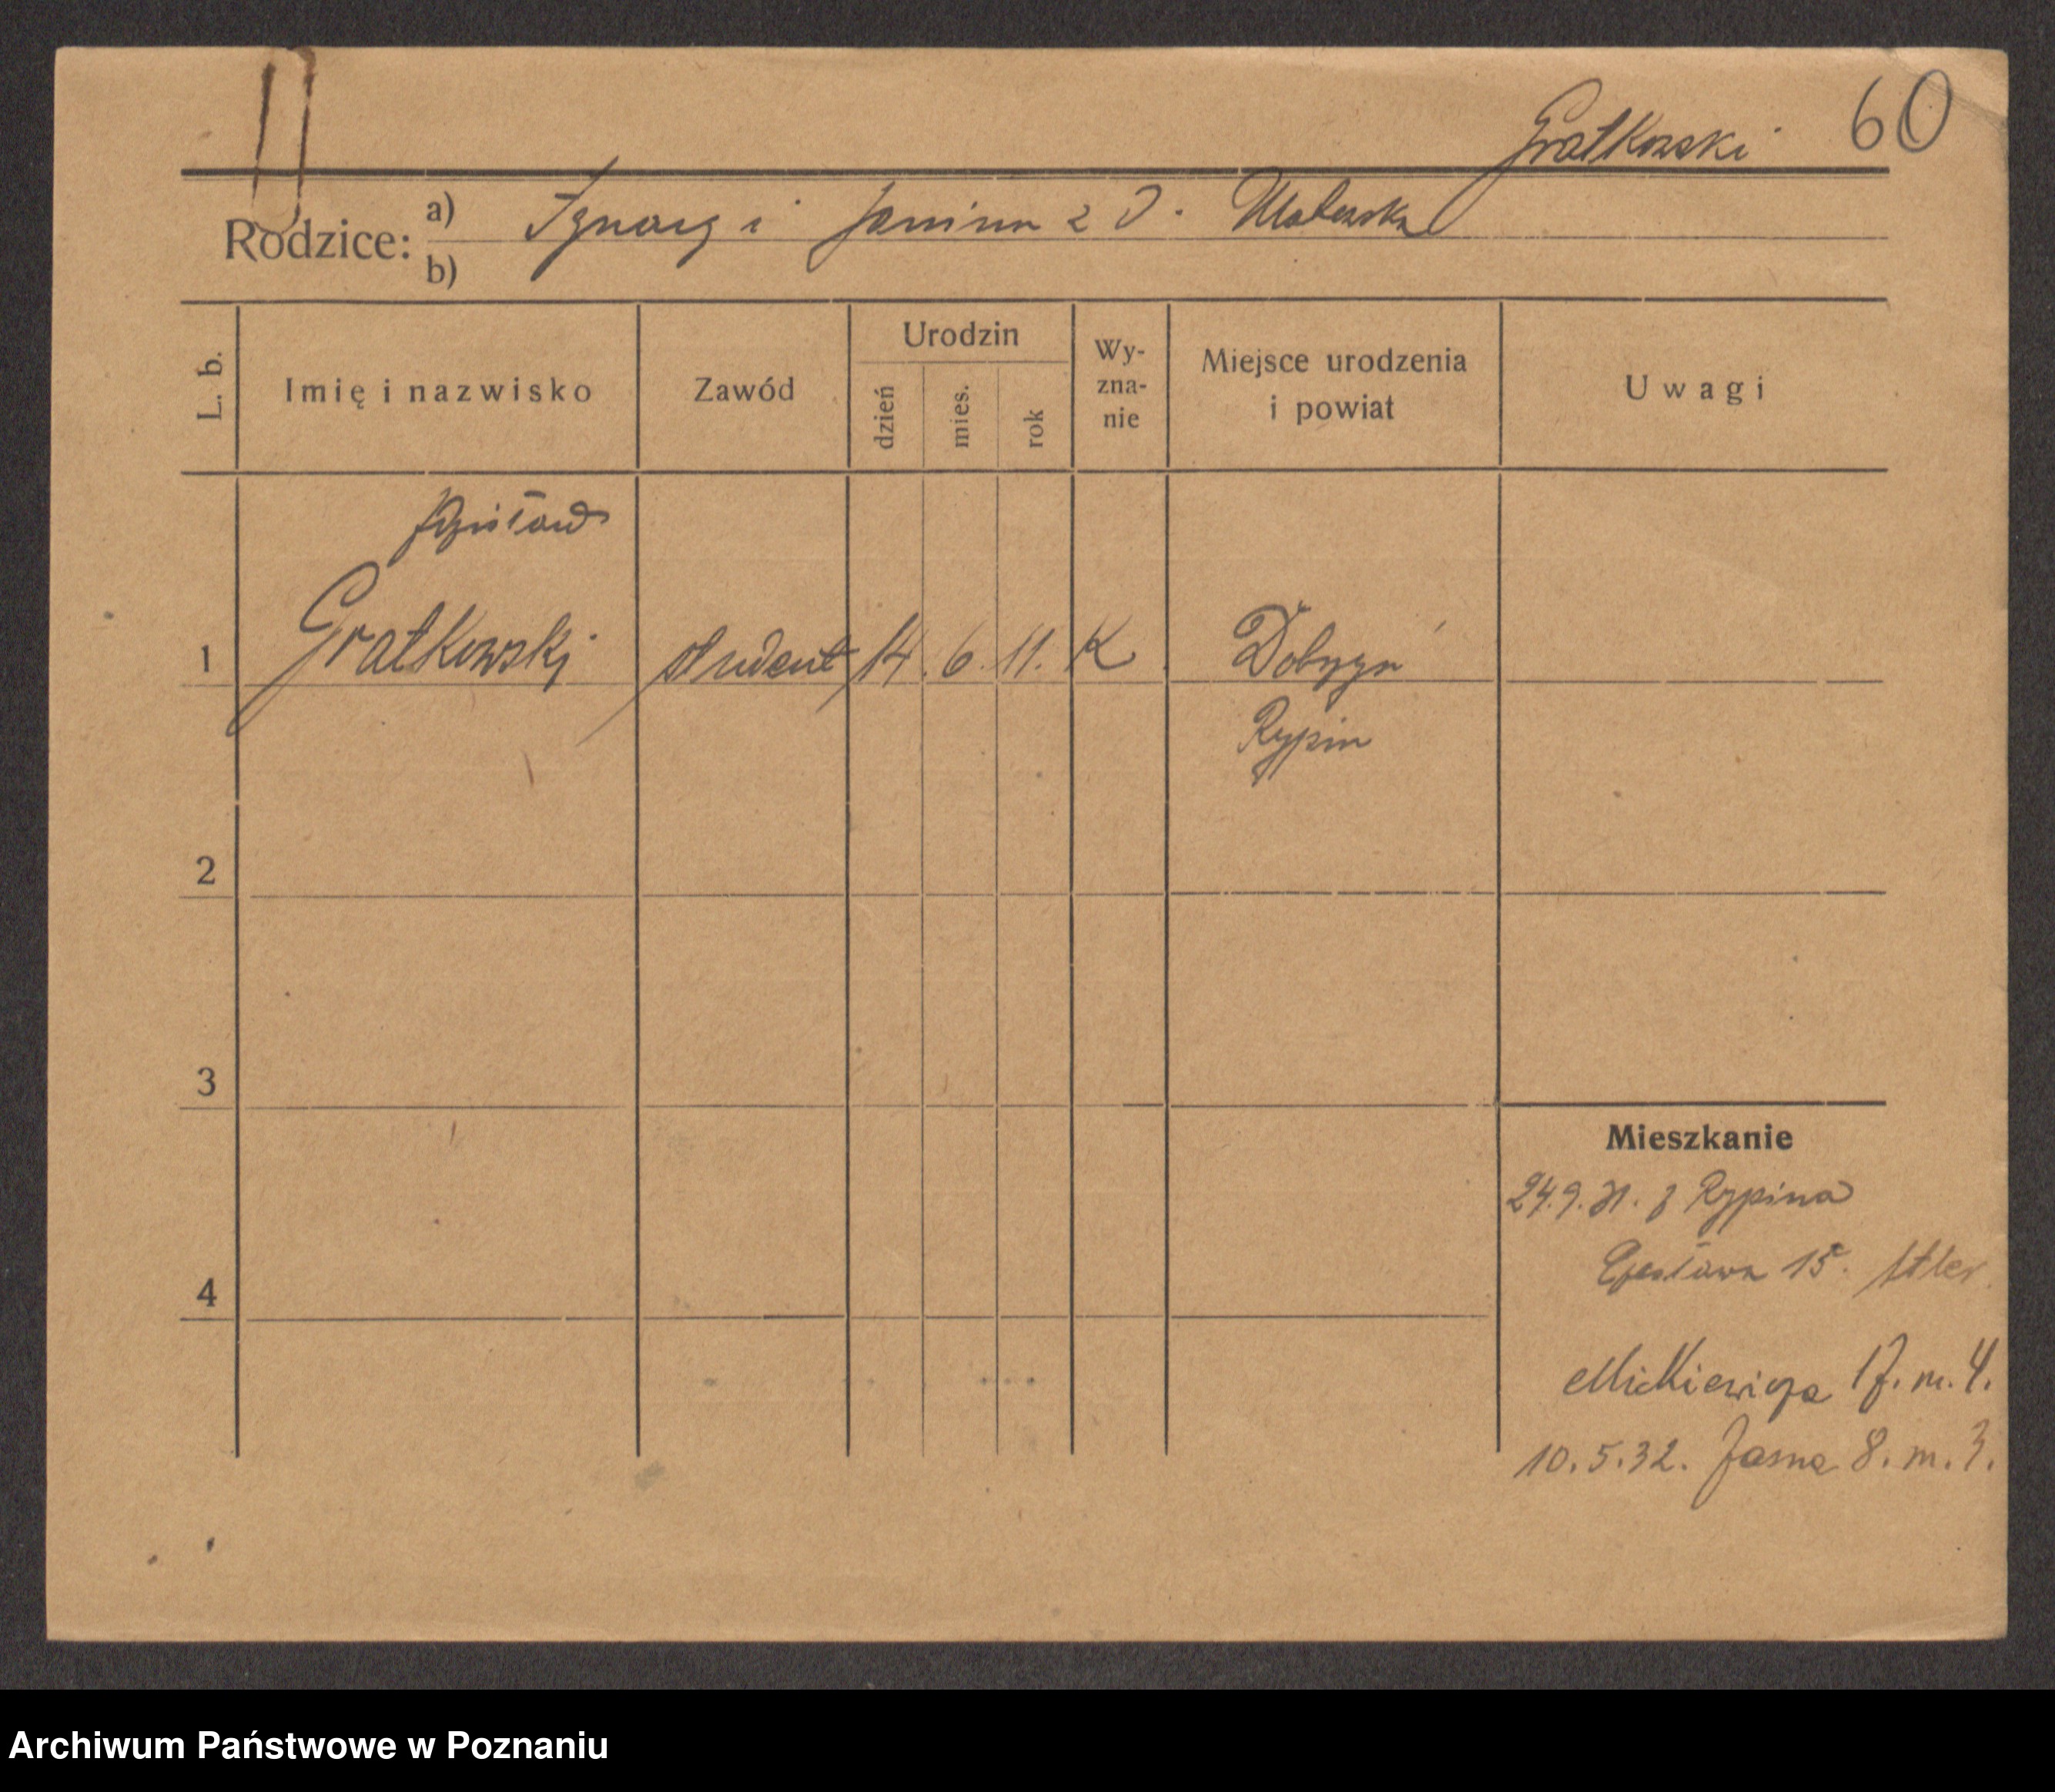 Gratkowski 60
Rodzice: a) Ignacy i Janina z d.
b)
L. b. Imię i nazwisko Zawód Urodzin dzień mies. rok Wy-zna-nie Miejsce urodzenia i powiat Uwagi
1 Gratkowski student 14. 6. 11. K Dobrzyń
Rypin
2
3
Mieszkanie
24.9.31. z Rypina
4 15.
Mickiewicza 17. m. 4.
10.5.32. Jasna 8. m. 3.
Archiwum Państwowe w Poznaniu